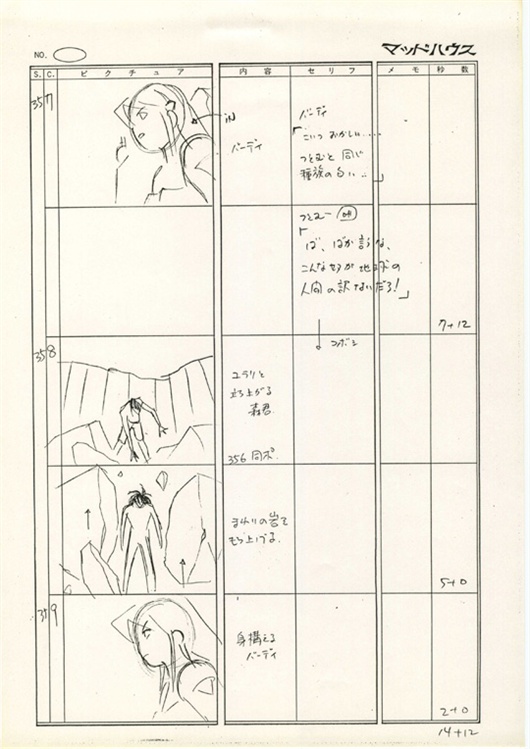 NO.
マッドハウス
S. C. ピクチュア 内容 セリフ メモ 秒数
357
iN
バーディ
バーディ
「こいつ おかしい....
つとむと 同じ
種族の匂い..」
つとむ
「ば、ばか言うな、
こんな奴が地球の
人間の訳ないだろ!」
7+12
358
コボシ
ユラリと
立ち上がる
森君
356 同ポ.
まわりの岩を
もち上げる.
5+0
359
身構える
バーディ
2+0
14+12